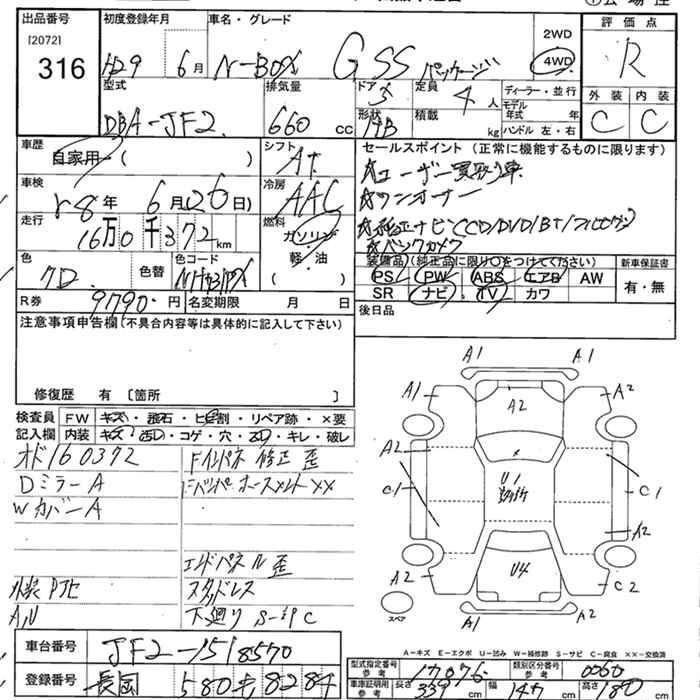 出品番号
[2072]
316
初度登録年月
H29 6月
車名・グレード
N-BOX G SSパッケージ
2WD
4WD
評価点
R
外装 内装
C C
型式
DBA-JF2
排気量
660 cc
ドア
5
形状
HB
定員
4人
積載
kg
ディーラー・並行
モデル年式 年
ハンドル 左・右
車歴
自家用・( )
シフト
AT
車検
r8年 6月26日)
冷房
AAC
走行
16万0千372km
燃料
ガソリン
軽・油
( )
色
クロ
色替
色コード
R券 9790円
名変期限 月 日
セールスポイント (正常に機能するものに限ります)
☆ユーザー買取り車
☆ワンオーナー
☆バックカメラ
装備品(純正品に限り○をつけてください)
PS PW ABS エアB AW
SR ナビ TV カワ
新車保証書
有・無
後日品
注意事項申告欄(不具合内容等は具体的に記入して下さい)
修復歴 有 〔箇所 〕
検査員記入欄
FW キズ・飛石・ヒビ割・リペア跡・×要
内装 キズ・汚れ・コゲ・穴・切れ・キレ・破レ
オド160372
Dミラー A
Wカバー A
Fインパネ 修正 歪
エンドパネル 歪
スタッドレス
下廻り S-部C
A1 A1
A1 A2
A2
A2
C1 U1 C1
A2
U4
A2 C2
A1 A2
スペア
A-キズ E-エクボ U-凹み W-補修跡 S-サビ C-腐食 ××-交換済
車台番号
JF2-1518570
登録番号
長岡 580 8284
型式指定番号
参考
17876
類別区分番号
参考
0060
車庫証明用
参考
長さ 339cm
幅 147cm
高さ 180cm